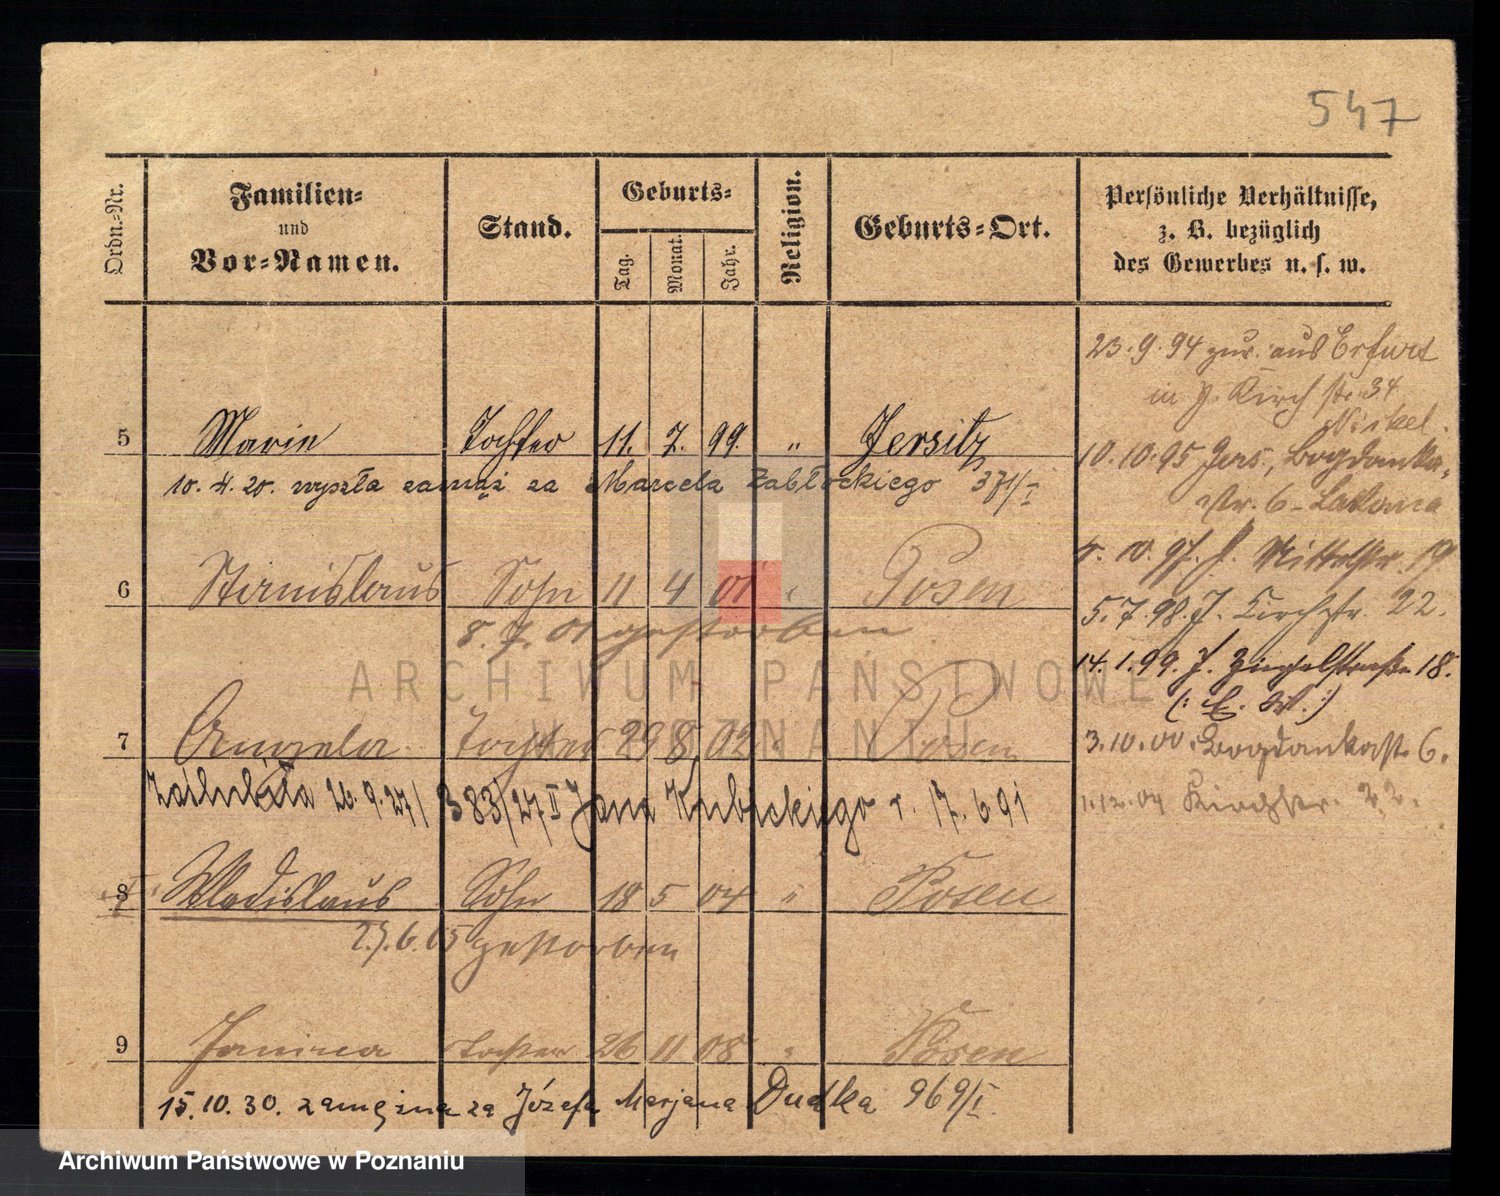 547
Ordn.-Nr.
Familien-
und
Vor-Namen.
Stand.
Geburts-
Tag.
Monat.
Jahr.
Religion.
Geburts-Ort.
Persönliche Verhältnisse,
z. B. bezüglich
des Gewerbes u. s. w.
5 Marie Tochter 11. 7. 99. " Jersitz
10. 4. 20. wyszła zamąż za Marcela Zabłockiego 371/I
6 Stanislaus Sohn 11 4 01 " Posen
8. 7. 01 gestorben
7 Angela Tochter 29 8 02 " Posen
zaślubiła 26.9.27/ 383/27 II Jana Kubickiego r. 17.6 91
8 Wladislaus Sohn 18 5 04 " Posen
27.6.05 gestorben
9 Janina Tochter 26 11 08 " Posen
15.10.30. zamężna za Józefa Marjana Dudka 969/I
23.9.94 zur. aus Erfurt
in J. Kirchstr. 34
10.10.95 Jers., Bogdanka-
str. 6
10. 97. J. Mittelstr. 19
5.7.98. J. Kirchstr. 22.
14.1.99. J. Ziegelstraße 18.
3.10.00. Bogdankastr. 6.
1.12.04 Kirchstr. 22.
ARCHIWUM PAŃSTWOWE
W POZNANIU
Archiwum Państwowe w Poznaniu